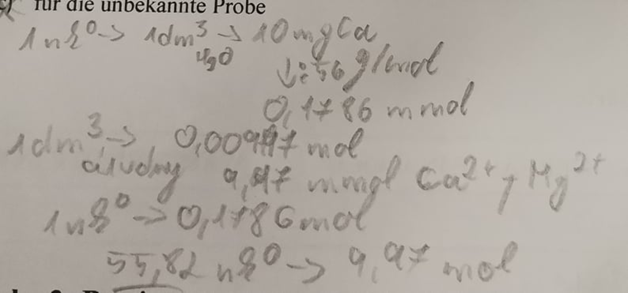 für die unbekannte Probe
1 nk⁰ → 1dm³ → 10 mg Ca
H₂O ↓ :56 g/mol
0,1786 mmol
1dm³ → 0,00997 mol
9,97 mmol Ca²⁺, Mg²⁺
1 nk⁰ → 0,1786 mol
55,82 nk⁰ → 9,97 mol